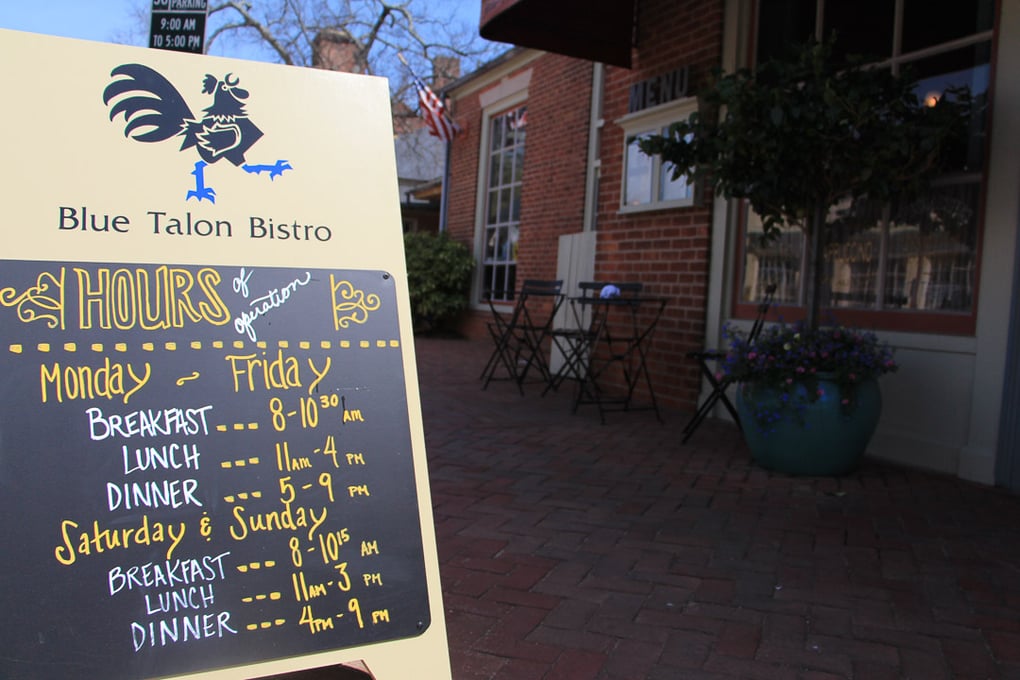 PARKING
9:00 AM
TO 5:00 PM
Blue Talon Bistro
HOURS of operation
Monday ~ Friday
BREAKFAST ---- 8-10 30 AM
LUNCH ---- 11AM-4 PM
DINNER ---- 5-9 PM
Saturday & Sunday
BREAKFAST --- 8-10 15 AM
LUNCH ---- 11AM-3 PM
DINNER ---- 4PM-9 PM
MENU